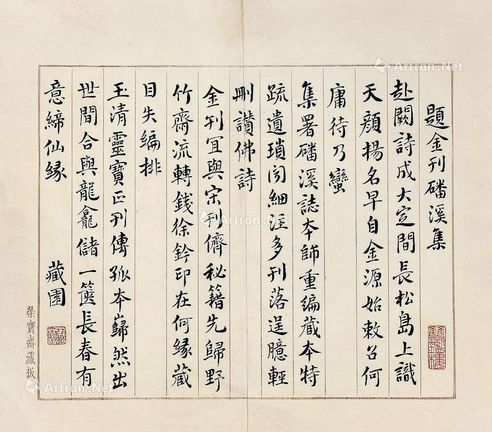 題金刊磻溪集
赴闕詩成大定間長松島上識
天顏揚名早自金源始敕召何
庸待乃蠻
集署磻溪誌本師重編藏本特
疏遺瑣聞細注多刊落逞臆輕
刪讚佛詩
金刊宜與宋刊儕秘籍先歸野
竹齋流轉錢徐鈐印在何緣藏
目失編排
玉清靈寶正刊傳孤本巋然出
世間合與龍龕儲一篋長春有
意締仙緣
藏園
榮寶齋藏板
Artron.Net
Artron.Net